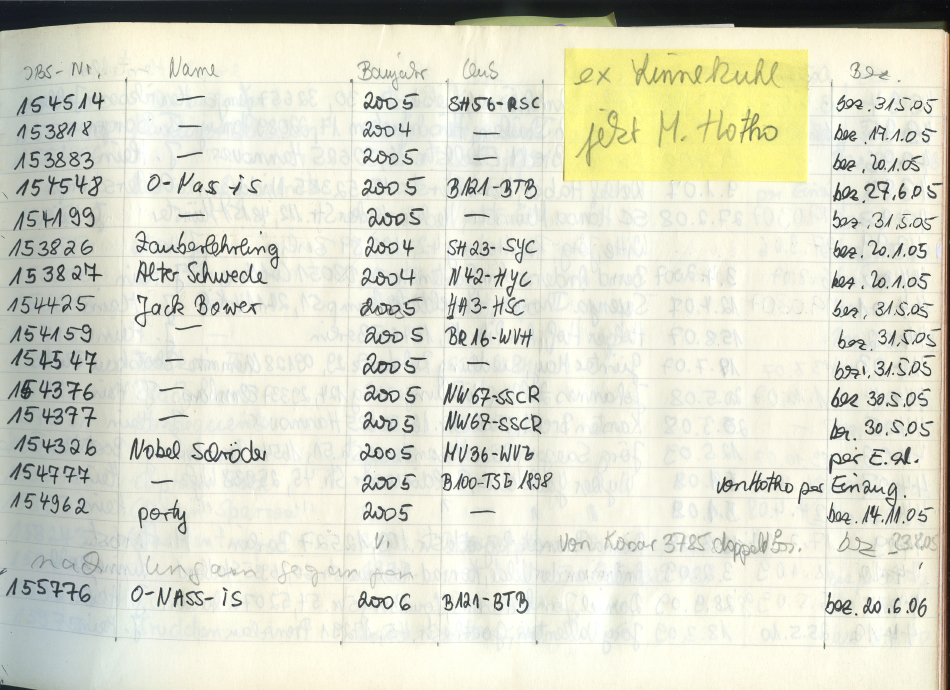 JBS-Nr. Name Baujahr Club Bez.
ex Linnekuhl
jetzt M. Hotho
154514 — 2005 SH56-RSC bez. 31.5.05
153818 — 2004 — bez. 17.1.05
153883 — 2005 — bez. 20.1.05
154548 O-Nass-is 2005 B121-BTB bez. 27.6.05
154199 2005 — bez. 31.5.05
153826 Zauberlehrling 2004 SH23-SYC bez. 20.1.05
153827 Alter Schwede 2004 N42-HYC bez. 20.1.05
154425 Jack Bower 2005 HA3-HSC bez. 31.5.05
154159 — 2005 BR16-WVH bez. 31.5.05
154547 — 2005 bez. 31.5.05
154376 — 2005 NW67-SSCR bez. 30.5.05
154377 — 2005 NW67-SSCR bez. 30.5.05
154326 Nobel Schröder 2005 per E.
154777 — 2005 B100-TSB 1898 von Hotho per Einzug.
154962 party 2005 — bez. 14.11.05
von 3725 doppelt bez.
155776 O-NASS-iS 2006 B121-BTB bez. 20.6.06